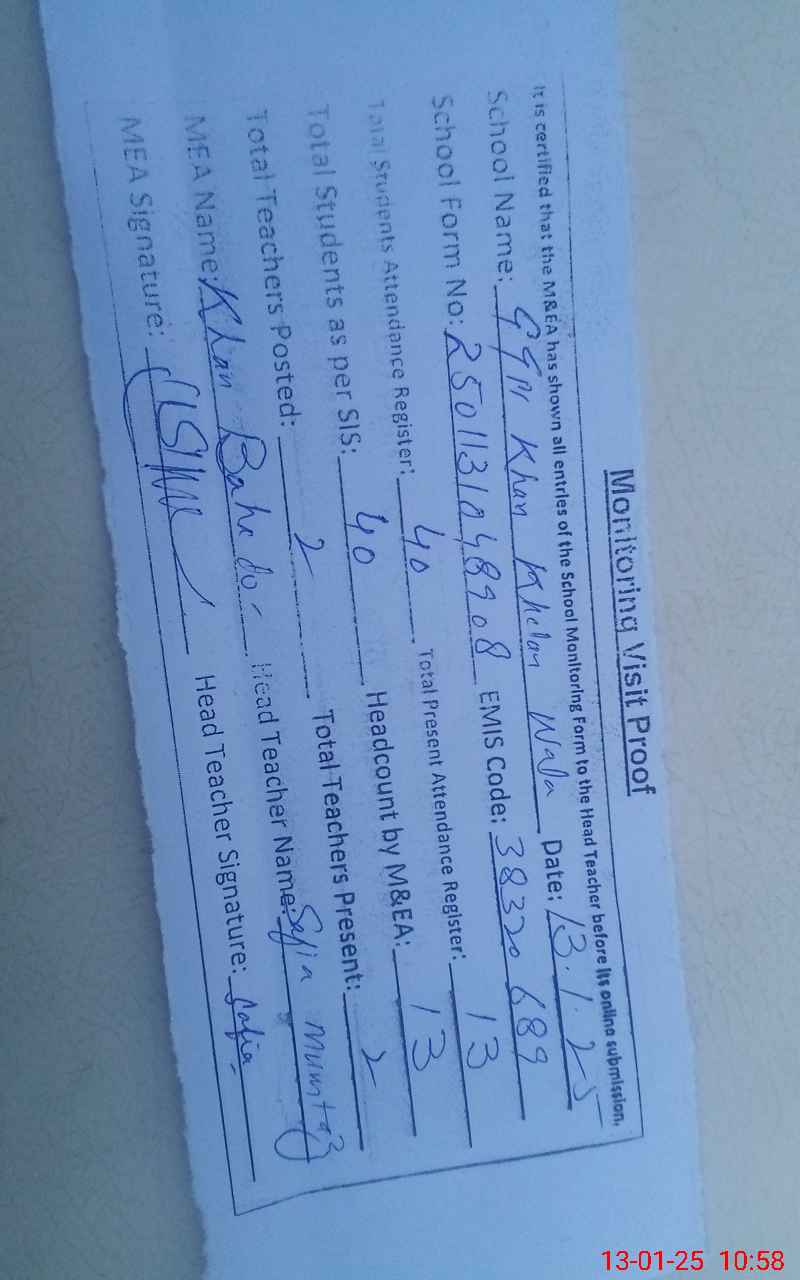 Monitoring Visit Proof
It is certified that the M&EA has shown all entries of the School Monitoring Form to the Head Teacher before its online submission.
School Name: GGPS Khan Khelan Wala Date: 13.1.25
School Form No: 2501131048908 EMIS Code: 38320689
Total Students Attendance Register: 40 Total Present Attendance Register: 13
Total Students as per SIS: 40 Headcount by M&EA: 13
Total Teachers Posted: 2 Total Teachers Present: 2
MEA Name: Khan Head Teacher Name: Safia Mumtaz
MEA Signature: Head Teacher Signature: Safia
13-01-25 10:58